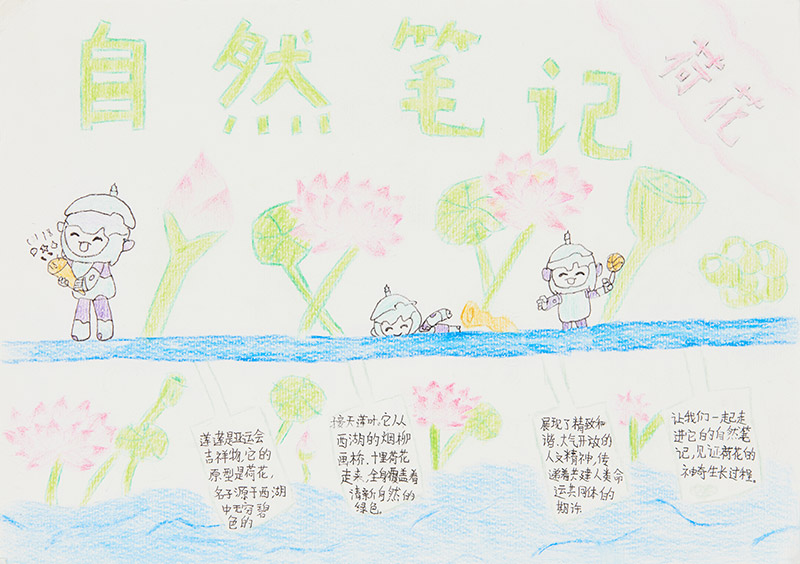 自然笔记
荷花
莲莲是亚运会
吉祥物,它的
原型是荷花,
名字源于西湖
中无穷碧
色的
接天莲叶,它从
西湖的烟柳
画桥、十里荷花
走来,全身覆盖着
清新自然的
绿色.
展现了精致和
谐、大气开放的
人文精神,传
递着共建人类命
运共同体的
期许.
让我们一起走
进它的自然笔
记,见证荷花的
神奇生长过程.